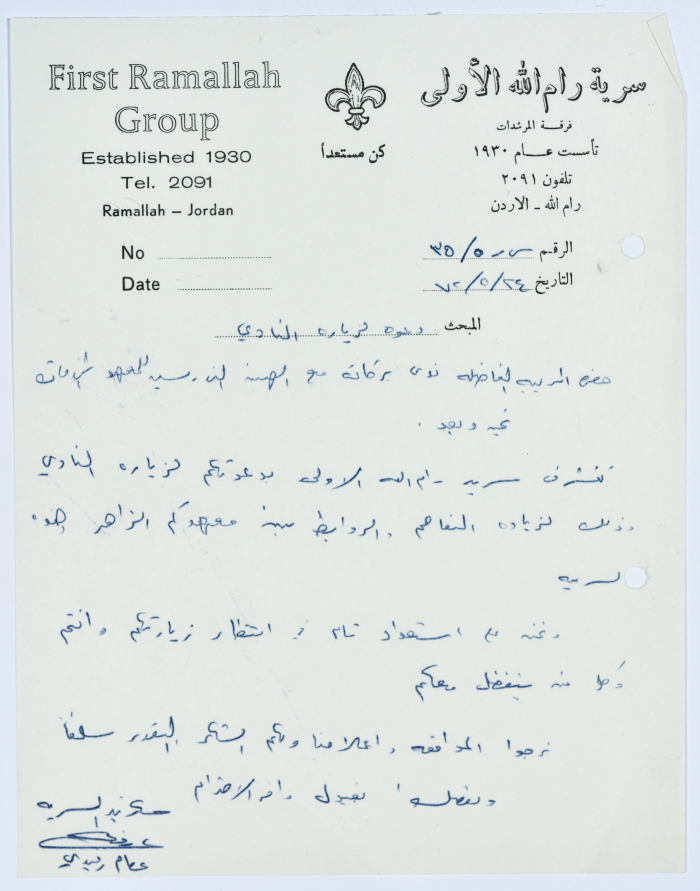 First Ramallah Group
Established 1930
Tel. 2091
Ramallah – Jordan
No
Date
كن مستعداً
سرية رام الله الأولى
فرقة المرشدات
تأسست عام ١٩٣٠
تلفون ٢٠٩١
رام الله - الاردن
الرقم س ر ٣٥/٥
التاريخ ٧٢/٥/٢٤
المبحث دعوه لزياره النادي
حضره المربيه الفاضله ندى بركات مع الهيئه التدريسيه للمعهد
تحيه وبعد .
تتشرف سريه رام الله الاولى بدعوتكم لزياره النادي
وذلك لزياده التفاهم والروابط بين معهدكم الزاهر وهذه
السريه
ونحن على استعداد تام في انتظار زيارتكم وانتم
وكل من يتفضل معكم
نرجوا الموافقه واعلامنا ولكم الشكر والتقدير سلفا
وتفضلوا بقبول وافر الاحترام